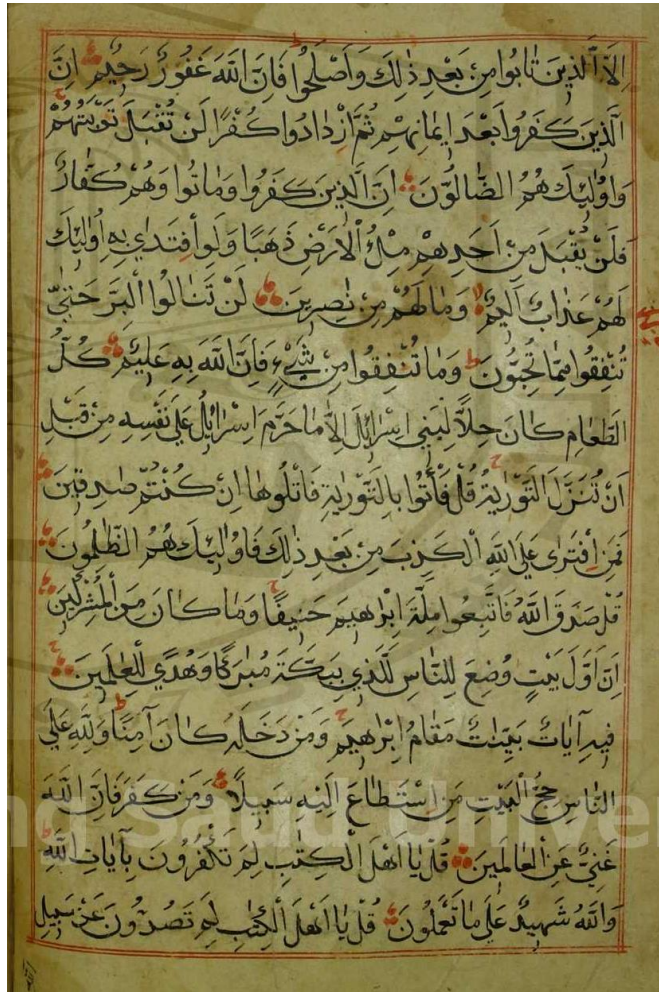 اِلَّا الَّذِينَ تَابُوا مِنْ بَعْدِ ذٰلِكَ وَاَصْلَحُوا فَاِنَّ اللّٰهَ غَفُورٌ رَحِيمٌ اِنَّ
الَّذِينَ كَفَرُوا بَعْدَ اِيمَانِهِمْ ثُمَّ ازْدَادُوا كُفْرًا لَنْ تُقْبَلَ تَوْبَتُهُمْ
وَاُولٰئِكَ هُمُ الضَّالُّونَ اِنَّ الَّذِينَ كَفَرُوا وَمَاتُوا وَهُمْ كُفَّارٌ
فَلَنْ يُقْبَلَ مِنْ اَحَدِهِمْ مِلْءُ الْاَرْضِ ذَهَبًا وَلَوِ افْتَدٰى بِهِ اُولٰئِكَ
لَهُمْ عَذَابٌ اَلِيمٌ وَمَا لَهُمْ مِنْ نٰصِرِينَ لَنْ تَنَالُوا الْبِرَّ حَتّٰى
تُنْفِقُوا مِمَّا تُحِبُّونَ وَمَا تُنْفِقُوا مِنْ شَيْءٍ فَاِنَّ اللّٰهَ بِهِ عَلِيمٌ كُلُّ
الطَّعَامِ كَانَ حِلًّا لِبَنِي اِسْرَائِلَ اِلَّا مَا حَرَّمَ اِسْرَائِلُ عَلٰى نَفْسِهِ مِنْ قَبْلِ
اَنْ تُنَزَّلَ التَّوْرٰيةُ قُلْ فَأْتُوا بِالتَّوْرٰيةِ فَاتْلُوهَا اِنْ كُنْتُمْ صٰدِقِينَ
فَمَنِ افْتَرٰى عَلَى اللّٰهِ الْكَذِبَ مِنْ بَعْدِ ذٰلِكَ فَاُولٰئِكَ هُمُ الظّٰلِمُونَ
قُلْ صَدَقَ اللّٰهُ فَاتَّبِعُوا مِلَّةَ اِبْرٰهِيمَ حَنِيفًا وَمَا كَانَ مِنَ الْمُشْرِكِينَ
اِنَّ اَوَّلَ بَيْتٍ وُضِعَ لِلنَّاسِ لَلَّذِي بِبَكَّةَ مُبٰرَكًا وَهُدًى لِلْعٰلَمِينَ
فِيهِ آيَاتٌ بَيِّنٰتٌ مَقَامُ اِبْرٰهِيمَ وَمَنْ دَخَلَهُ كَانَ آمِنًا وَلِلّٰهِ عَلَى
النَّاسِ حِجُّ الْبَيْتِ مَنِ اسْتَطَاعَ اِلَيْهِ سَبِيلًا وَمَنْ كَفَرَ فَاِنَّ اللّٰهَ
غَنِيٌّ عَنِ الْعَالَمِينَ قُلْ يَا اَهْلَ الْكِتٰبِ لِمَ تَكْفُرُونَ بِآيَاتِ اللّٰهِ
وَاللّٰهُ شَهِيدٌ عَلٰى مَا تَعْمَلُونَ قُلْ يَا اَهْلَ الْكِتٰبِ لِمَ تَصُدُّونَ عَنْ سَبِيلِ